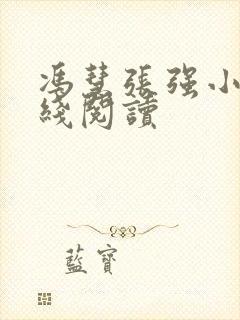 馮慧張强小
綫閱讀
藍寶